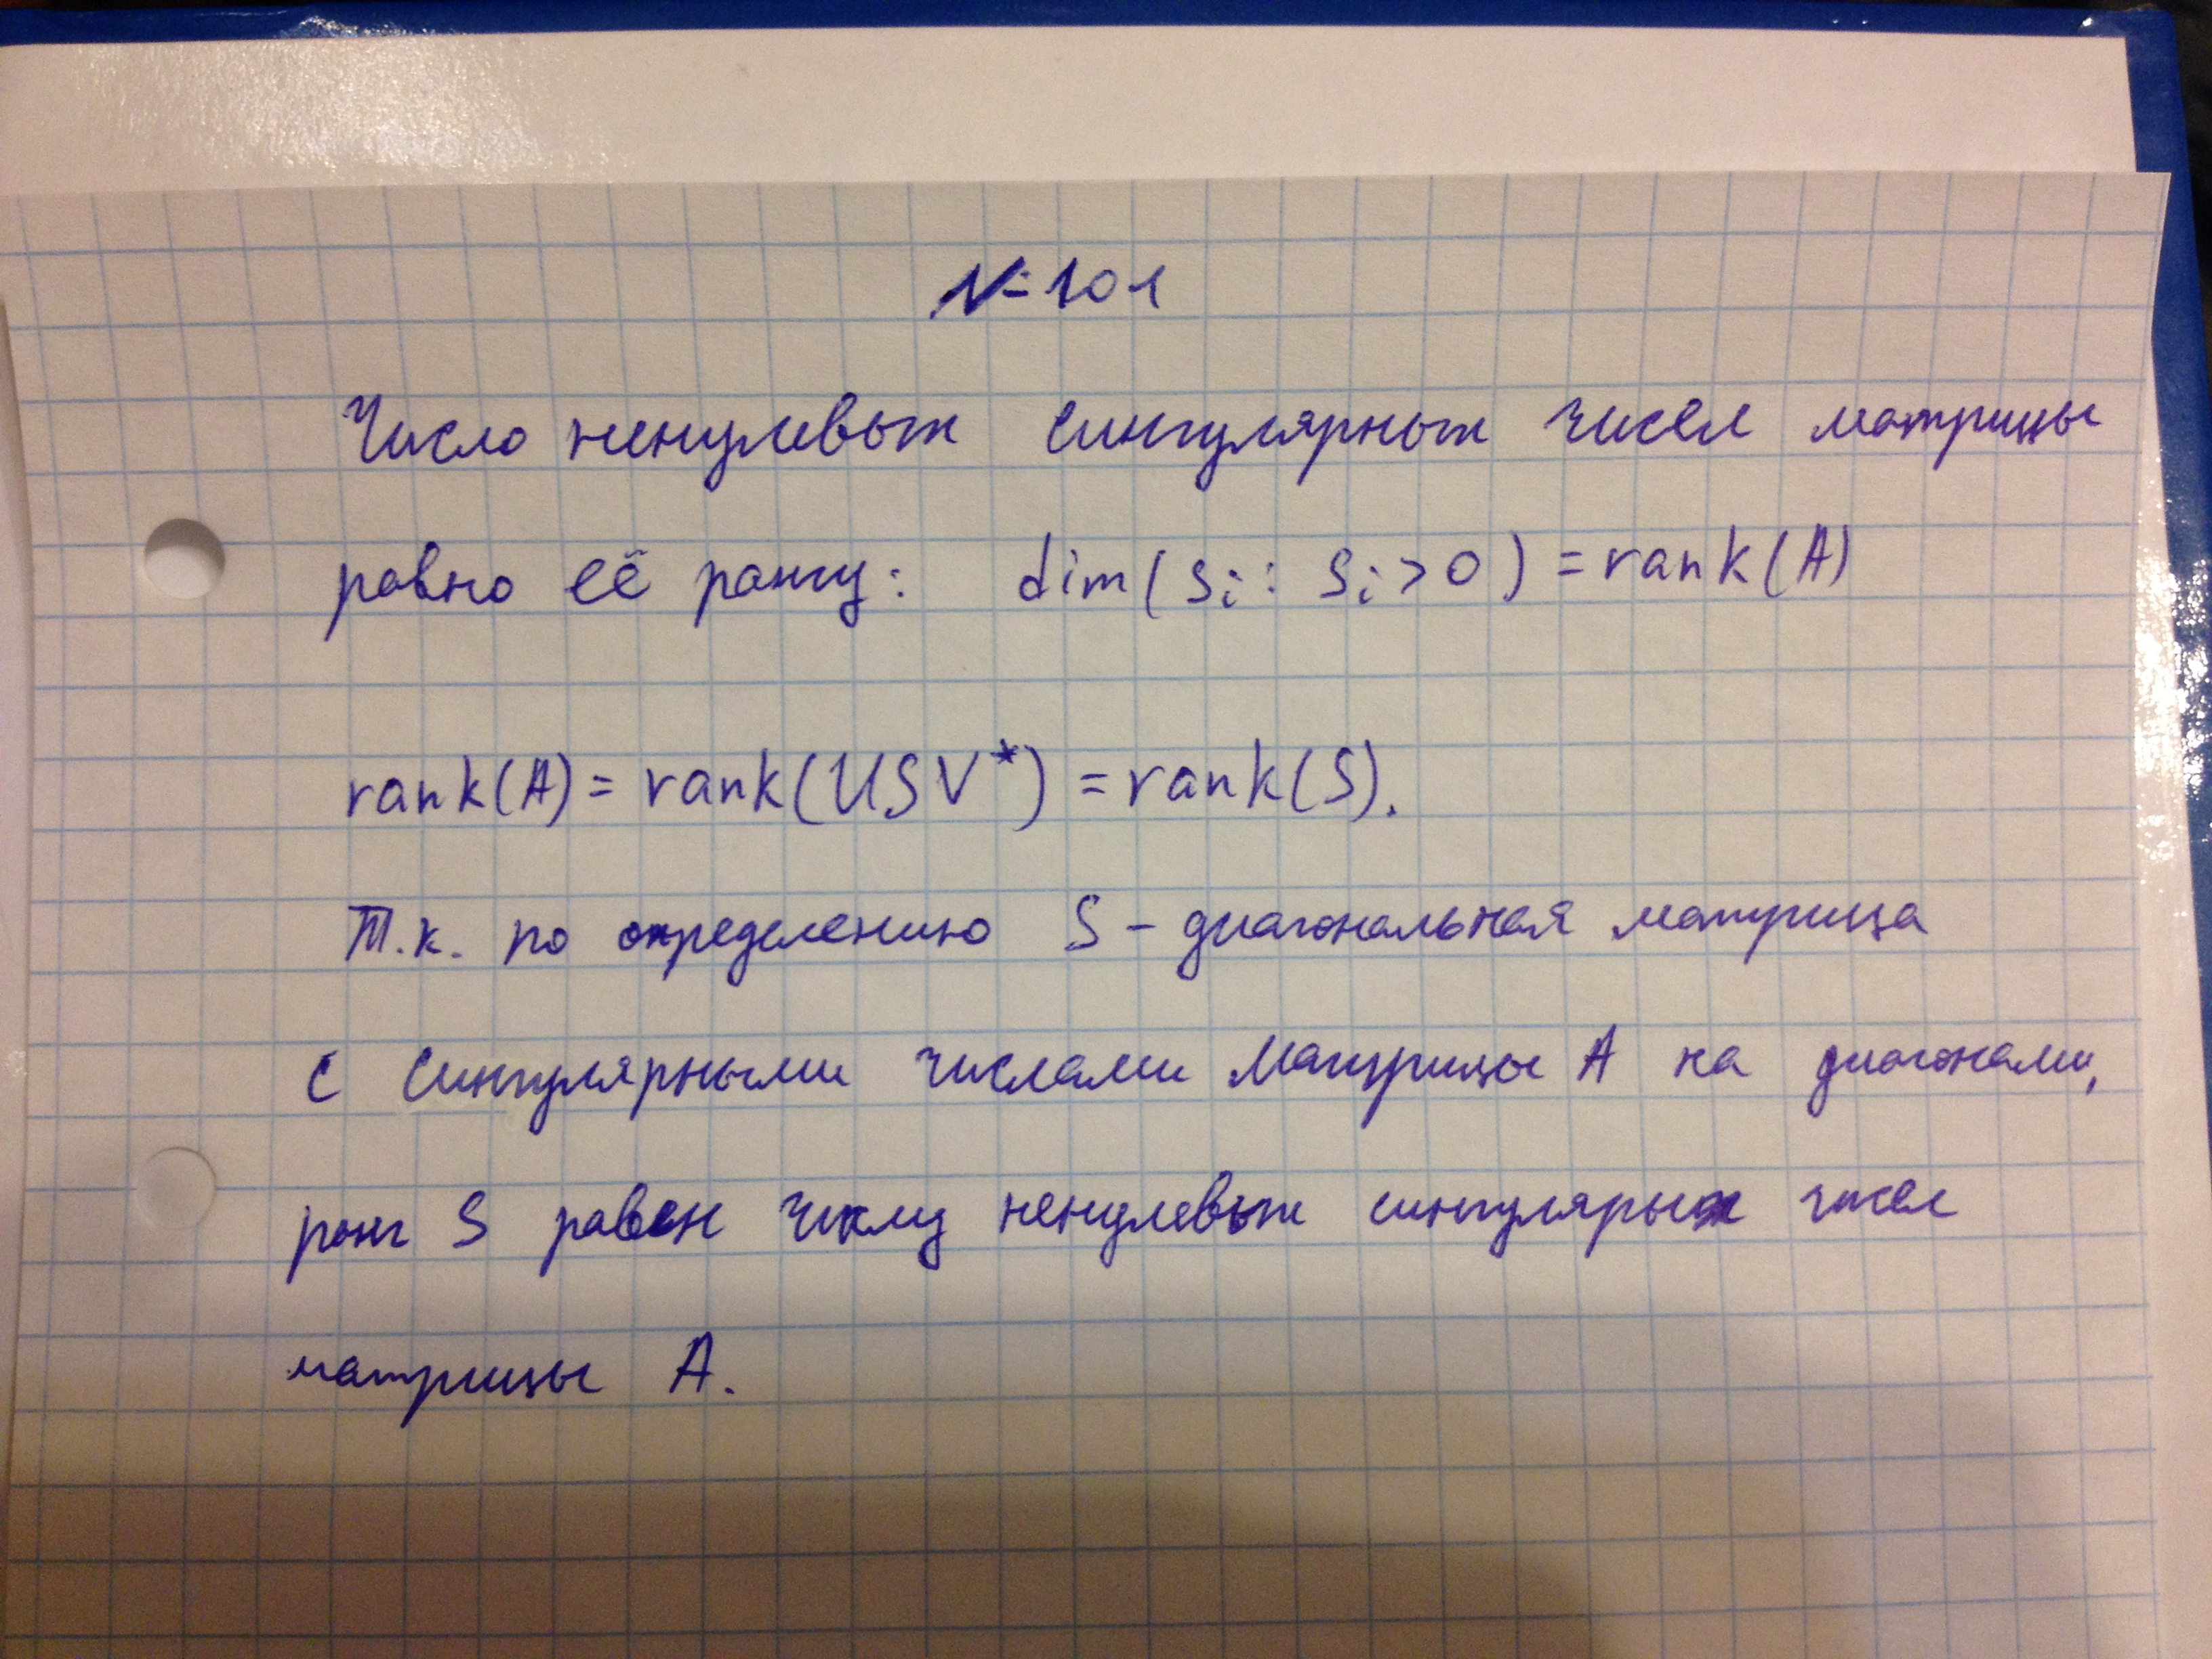 № 101
Число ненулевых сингулярных чисел матрицы
равно её рангу: dim(si : si > 0) = rank(A)
rank(A) = rank(USV*) = rank(S).
Т.к. по определению S - диагональная матрица
с сингулярными числами матрицы A на диагонали,
ранг S равен числу ненулевых сингулярых чисел
матрицы A.